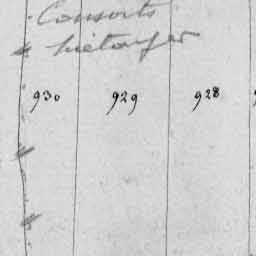 Consorts
930 929 928